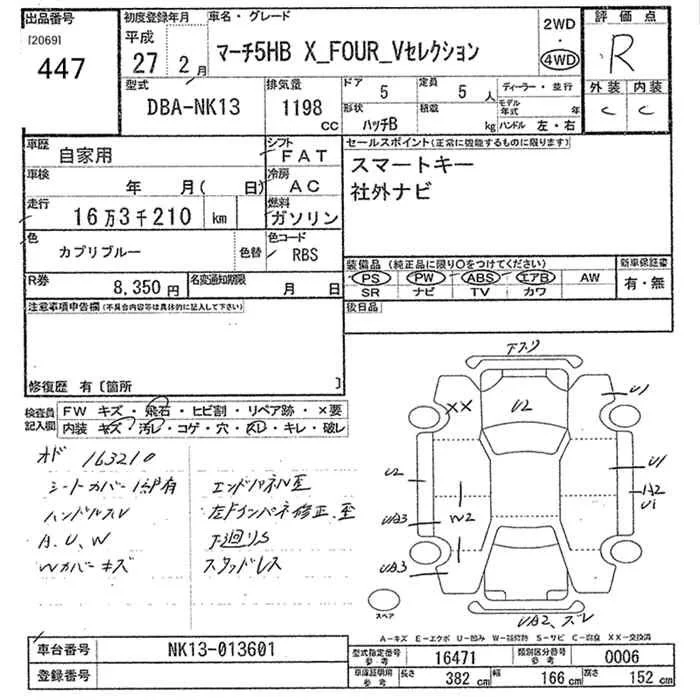 出品番号
[2069]
447
初度登録年月
平成
27 2 月
車名・グレード
マーチ5HB X_FOUR_Vセレクション
2WD
・
4WD
評価点
R
外装 内装
C C
型式
DBA-NK13
排気量
1198
cc
ドア 5
定員 5 人
形状 ハッチB
積載 kg
ディーラー・並行
モデル年式 年
ハンドル 左・右
車歴 自家用
シフト FAT
車検 年 月( 日)
冷房 AC
走行 16万3千210 km
燃料 ガソリン
色 カプリブルー 色替
色コード RBS
R券 8,350 円
名変通知期限 月 日
セールスポイント(正常に機能するものに限ります)
スマートキー
社外ナビ
装備品 (純正品に限り〇をつけてください)
PS PW ABS エアB AW
SR ナビ TV カワ
新車保証書
有・無
後日品
注意事項申告欄(不具合内容等は具体的に記入して下さい)
修復歴 有〔箇所 〕
検査員記入欄
FW キズ・飛石・ヒビ割・リペア跡・×要
内装 キズ・汚レ・コゲ・穴・スレ・キレ・破レ
オド 163210
シートカバー1部有
ハンドルスレ
A、U、W
Wカバーキズ
エンドパネル歪
左Fインパネ修正、歪
下廻りS
スタッドレス
下フリ
XX
U2
U1
U2
U1
A2
Ui
UA3
W2
UA3
UA2、ズレ
スペア
A-キズ E-エクボ U-凹み W-補修跡 S-サビ C-腐食 XX-交換済
車台番号 NK13-013601
登録番号
型式指定番号 参考 16471
類別区分番号 参考 0006
車庫証明用 参考
長さ 382 cm
幅 166 cm
高さ 152 cm